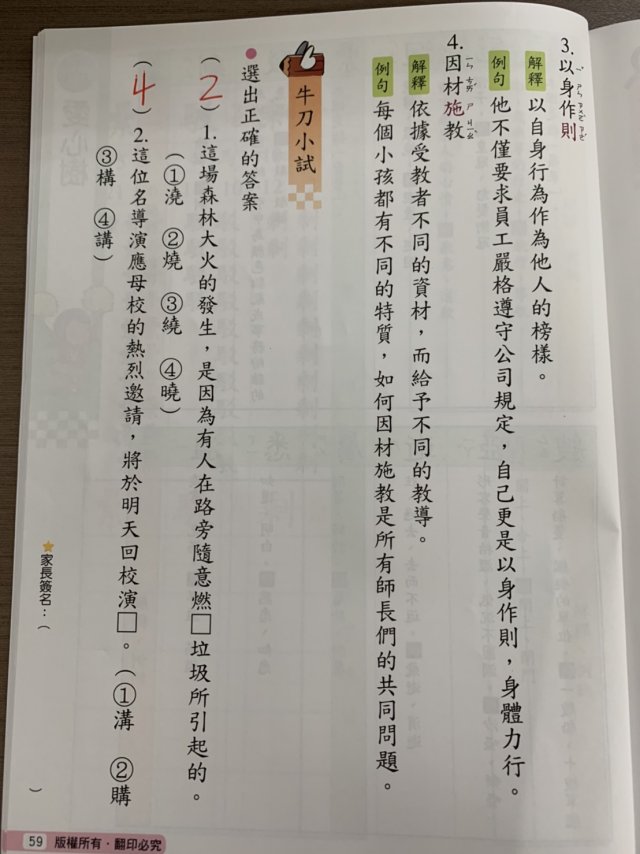 3.以身作則
ㄧˇ ㄕㄣ ㄗㄨㄛˋ ㄗㄜˊ
解釋 以自身行為作為他人的榜樣。
例句 他不僅要求員工嚴格遵守公司規定，自己更是以身作則，身體力行。
4.因材施教
ㄧㄣ ㄘㄞˊ ㄕ ㄐㄧㄠˋ
解釋 依據受教者不同的資材，而給予不同的教導。
例句 每個小孩都有不同的特質，如何因材施教是所有師長們的共同問題。
牛刀小試
●選出正確的答案
(2)1.這場森林大火的發生，是因為有人在路旁隨意燃□垃圾所引起的。
(①澆 ②燒 ③繞 ④曉)
(4)2.這位名導演應母校的熱烈邀請，將於明天回校演□。(①溝 ②購
③構 ④講)
★家長簽名：( )
59 版權所有·翻印必究